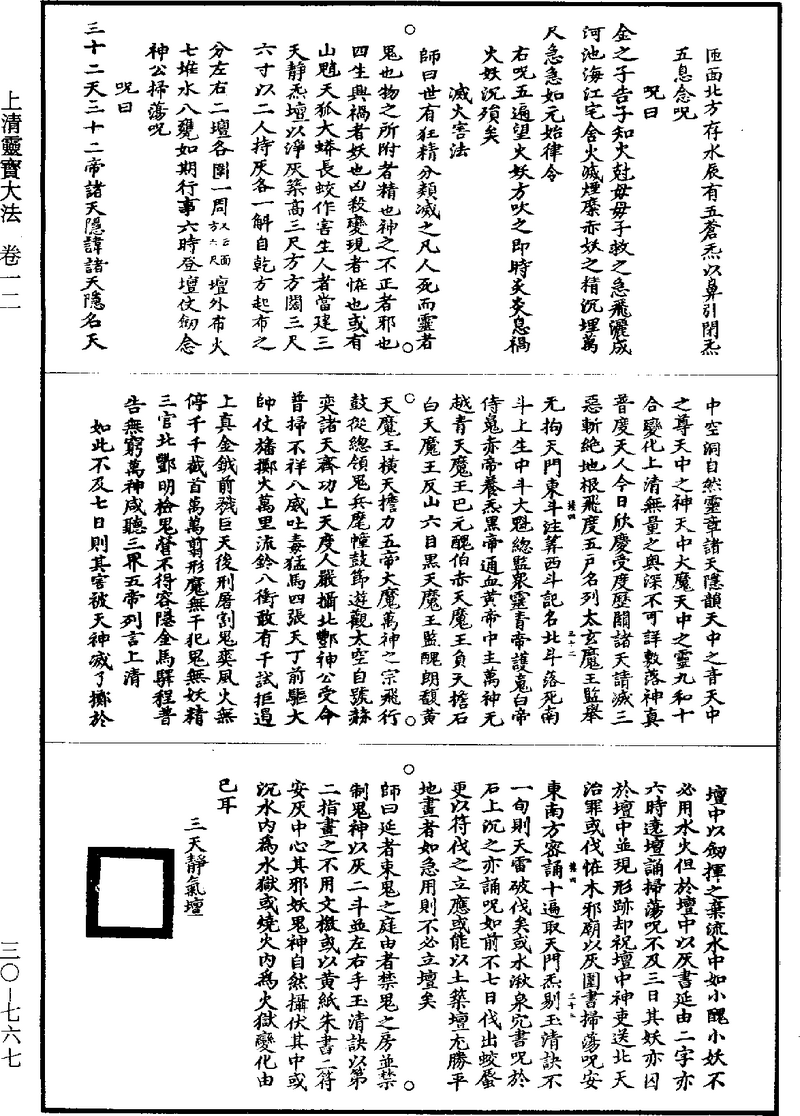 上清靈寶大法 卷一二
三〇—七六七
匝面北方存水辰有五蒼炁以鼻引閉炁
五息念呪
呪曰
金之子告子知火尅毋毋子救之急飛灑咸
河池海江宅舍火滅煙縻赤妖之精沉埋萬
尺急急如元始律令
右呪五遍望火妖方吹之即時炎炎息禍
火妖沉殞矣
滅火害法
師曰世有狂精分類滅之凡人死而靈者
鬼也物之所附者精也神之不正者邪也
四生興禍者妖也凶殺變現者恠也或有
山魈天狐大蟒長蛟作害生人者當建三
天靜炁壇以淨灰築高三尺方方闊三尺
六寸以二人持灰各一斛自乾方起布之
分左右二壇各圍一周又云面方六尺壇外布火
七堆水八甕如期行事六時登壇仗劒念
神公掃蕩呪
呪曰
三十二天三十二帝諸天隱諱諸天隱名天
中空洞自然靈章諸天隱韻天中之音天中
之尊天中之神天中大魔天中之靈九和十
合變化上清無量之奧深不可詳敷落神真
普度天人今日欣慶受度歷關諸天請滅三
惡斬絶地根飛度五戶名列太玄魔王監舉
无拘天門東斗注筭西斗記名北斗落死南
斗上生中斗大魁總監衆靈青帝護魂白帝
侍魄赤帝養炁黑帝通血黃帝中主萬神无
越青天魔王巴元醜伯赤天魔王負天擔石
白天魔王反山六目黑天魔王監醜朗馥黃
天魔王橫天擔力五帝大魔萬神之宗飛行
鼓從總領鬼兵麾幢鼓節遊觀太空自號赫
奕諸天齊功上天度人嚴攝北酆神公受命
普掃不祥八威吐毒猛馬四張天丁前驅大
師仗旛擲火萬里流鈴八衝敢有千試拒遏
上真金鉞前戮巨天後刑屠割鬼爽風火無
停千千截首萬萬剪形魔無千犯鬼無妖精
三官北酆明檢鬼營不得容隱金馬驛程普
告無窮萬神咸聽三界五帝列言上清
如此不及七日則其害被天神滅了擲於
壇中以劒揮之棄流水中如小醜小妖不
必用水火但於壇中以灰書延由二字亦
六時遶壇誦掃蕩呪不及三日其妖亦囚
於壇中並現形跡却祝壇中神吏送北天
治罪或伐恠木邪廟以灰圍書掃蕩呪安
東南方密誦十遍取天門炁剔玉清訣不
一旬則天雷破伐矣或水湫泉穴書呪於
石上沉之亦誦呪如前不七日伐出蛟蜃
更以符伐之立應或能以土築壇尤勝平
地畫者如急用則不必立壇矣
師曰延者東鬼之庭由者禁鬼之房並禁
制鬼神以灰二斗並左右手玉清訣以第
二指畫之不用文檄或以黃紙朱書二符
安灰中心其邪妖鬼神自然攝伏其中或
沉水內爲水獄或燒火內爲火獄變化由
巳耳
三天靜氣壇